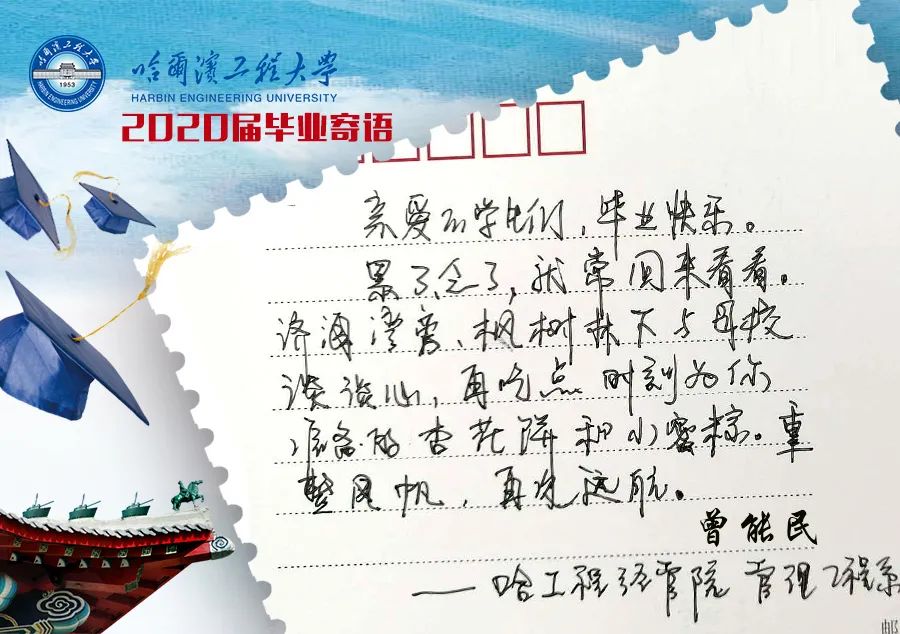 哈爾濱工程大學
HARBIN ENGINEERING UNIVERSITY
1953
哈爾濱工程大學
HARBIN ENGINEERING UNIVERSITY
2020届毕业寄语
亲爱的学生们，毕业快乐。
累了念了，就常回来看看。
枫树林下与母校
谈谈心，再吃点时刻为你
准备的杏花饼和小蜜粽。重
整风帆，再 远航。
曾能民
——哈工程经管院 管理工程系
邮